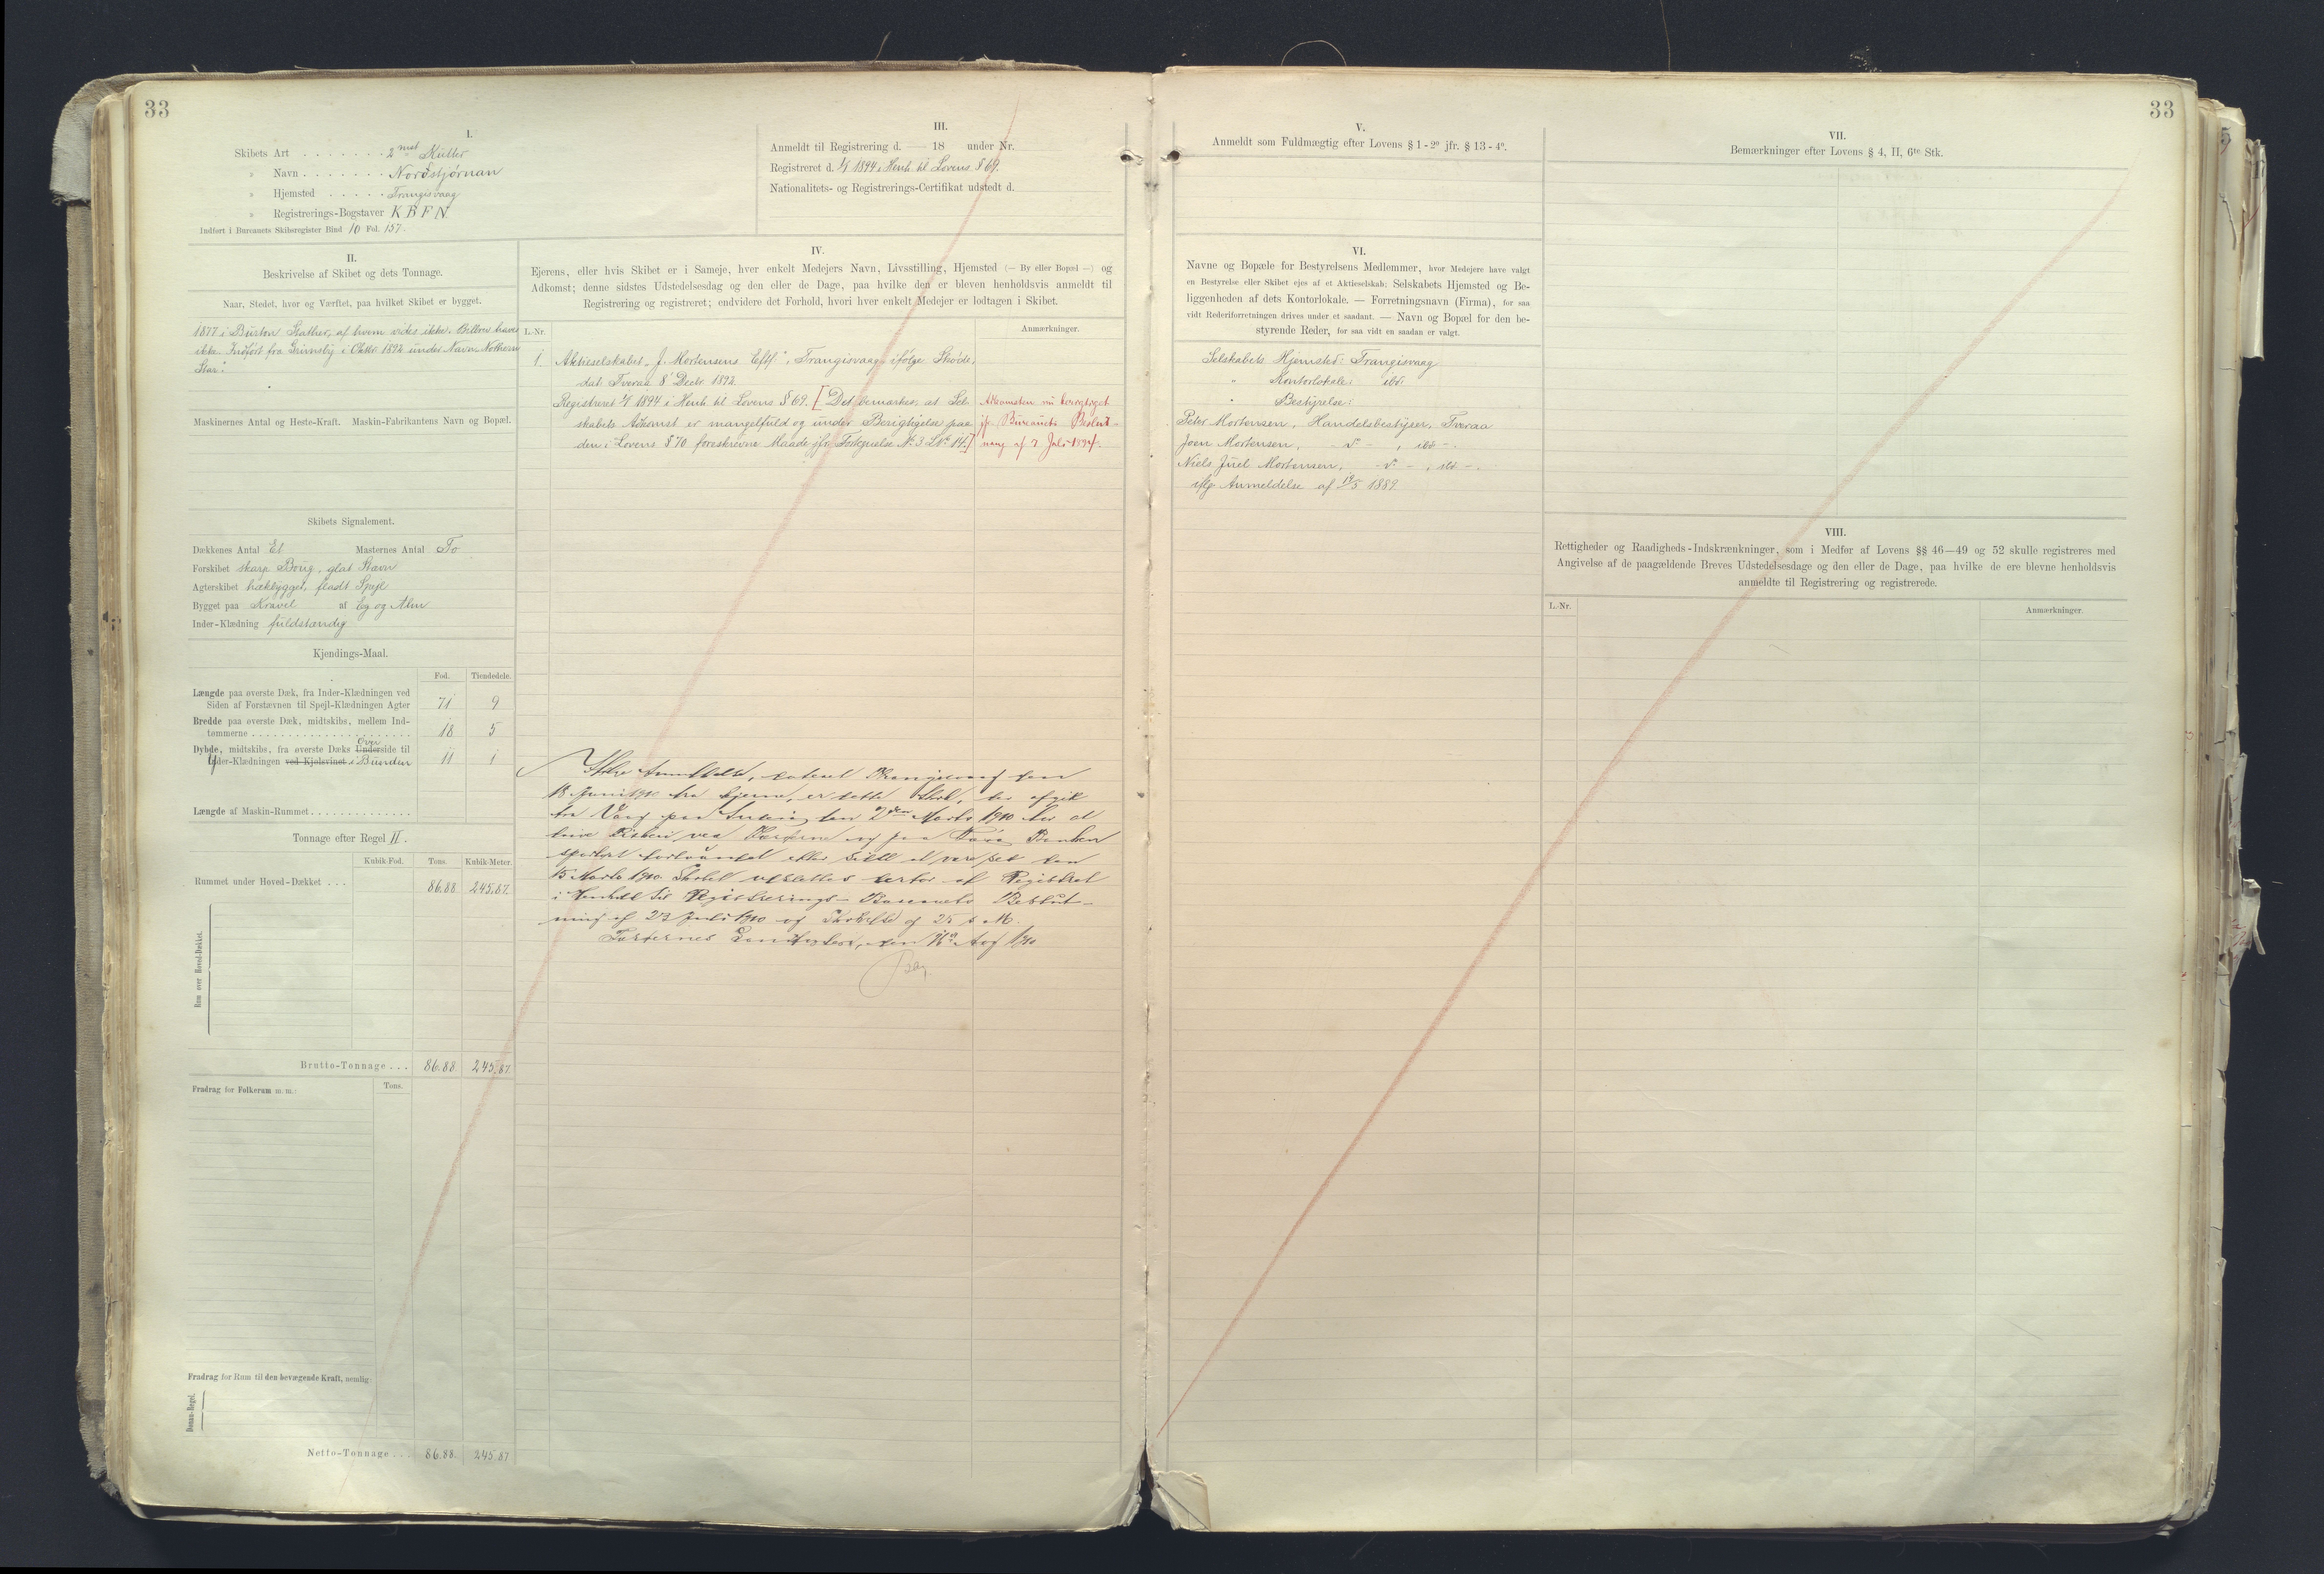 33
I.
Skibets Art . . . . . . . 2 mst Kutter
» Navn . . . . . . . Nordstjørnan
» Hjemsted . . . . . Trangisvaag
» Registrerings-Bogstaver K B F N.
Indført i Bureauets Skibsregister Bind 10 Fol. 157.
III.
Anmeldt til Registrering d. — 18 under Nr.
Registreret d. 1894 i Henh. til Lovens § 69.
Nationalitets- og Registrerings-Certifikat udstedt d.
II.
Beskrivelse af Skibet og dets Tonnage.
Naar, Stedet, hvor og Værftet, paa hvilket Skibet er bygget.
1877 i Burton Stather, af hvem vides ikke. Bilbrev haves
ikke. Indført fra Grimsby i Oktbr 1892 under Navn Nothern
Star".
Maskinernes Antal og Heste-Kraft. Maskin-Fabrikantens Navn og Bopæl.
Skibets Signalement.
Dækkenes Antal Et Masternes Antal To
Forskibet skarp Boug, glat Stavn
Agterskibet hækbygget, fladt Spejl
Bygget paa Kravel af Eg og Alm
Inder-Klædning fuldstændig
Kjendings-Maal.
Fod. Tiendedele.
Længde paa øverste Dæk, fra Inder-Klædningen ved
Siden af Forstævnen til Spejl-Klædningen Agter 71 9
Bredde paa øverste Dæk, midtskibs, mellem Ind-
tømmerne . . . 18 5
Over
Dybde, midtskibs, fra øverste Dæks Underside til
Inder-Klædningen ved Kjølsvinet i Bunden 11 1
Længde af Maskin-Rummet . . .
Tonnage efter Regel II.
Kubik-Fod. Tons. Kubik-Meter.
Rummet under Hoved-Dækket . . . 86.88 245.87.
Rum over Hoved-Dækket.
Brutto-Tonnage . . . 86.88 245.87.
Fradrag for Folkerum m. m.: Tons.
Fradrag for Rum til den bevægende Kraft, nemlig:
Donau-Regel.
Netto-Tonnage . . . 86.88. 245.87
IV.
Ejerens, eller hvis Skibet er i Sameje, hver enkelt Medejers Navn, Livsstilling, Hjemsted (— By eller Bopæl —) og
Adkomst; denne sidstes Udstedelsesdag og den eller de Dage, paa hvilke den er bleven henholdsvis anmeldt til
Registrering og registreret; endvidere det Forhold, hvori hver enkelt Medejer er lodtagen i Skibet.
L.-Nr. Anmærkninger.
1. Aktieselskabet "J. Mortensens Eftf.", Trangisvaag ifølge Skøde,
dat. Tveraa 8' Decbr. 1892.
Registreret 1894 i Henh. til Lovens § 69. [Det bemærkes, at Sel-
skabets Adkomst er mangelfuld og under Berigtigelse paa
den i Lovens § 70 foreskrevne Maade jfr. Fortegnelse No. 3 L.No. 14.]
Adkomsten nu berigtiget
jfr. Bureauets Beslut-
ning af 7 Juli 1894.
Ifølge Anmeldelse, dateret Trangisvaag den
18 Juni 1910 fra Ejerne, er dette Skib, der afgik
fra Vaag paa Fiskeri den 2den Marts 1910 for at
drive Fiskeri ved Færøerne og paa Færø Banken
sporløst forsvundet efter sidst at være set den
15 Marts 1910. Skibet udslettes derfor af Registret
i Henhold til Registrerings-Bureauets Beslut-
ning af 23 Juli 1910 og Skrivelse af 25 s. M.
Færøernes Sorenskriveri, den Aug 1910
33
V.
Anmeldt som Fuldmægtig efter Lovens § 1 - 2º jfr. § 13 - 4º.
VI.
Navne og Bopæle for Bestyrelsens Medlemmer, hvor Medejere have valgt
en Bestyrelse eller Skibet ejes af et Aktieselskab; Selskabets Hjemsted og Be-
liggenheden af dets Kontorlokale. — Forretningsnavn (Firma), for saa
vidt Rederiforretningen drives under et saadant. — Navn og Bopæl for den be-
styrende Reder, for saa vidt en saadan er valgt.
Selskabets Hjemsted: Trangisvaag
" Kontorlokale: ibd.
" Bestyrelse:
Peter Mortensen, Handelsbestyrer, Tveraa
Joen Mortensen, - d° - , ibd -.
Niels Juel Mortensen, - d° - , ibd -.
iflg Anmeldelse af 14/5 1889
VII.
Bemærkninger efter Lovens § 4, II, 6te Stk.
VIII.
Rettigheder og Raadigheds-Indskrænkninger, som i Medfør af Lovens §§ 46—49 og 52 skulle registreres med
Angivelse af de paagældende Breves Udstedelsesdage og den eller de Dage, paa hvilke de ere blevne henholdsvis
anmeldte til Registrering og registrerede.
L.-Nr. Anmærkninger.